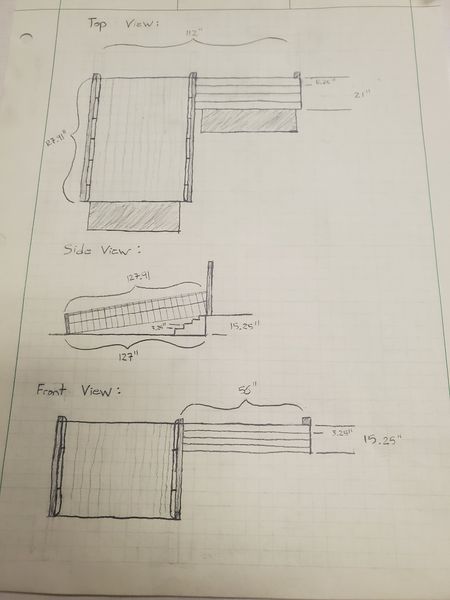 Top View:
112"
127.91"
21"
Side View:
127.91
15.25"
127"
Front View:
56"
15.25"